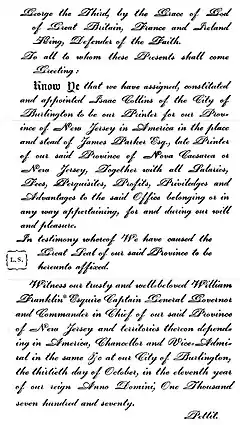 George the Third, by the Grace of God
of Great Britain, France and Ireland
King, Defender of the Faith.
To all to whom these Presents shall come
Greeting:
Know Ye that we have assigned, constituted
and appointed Isaac Collins of the City of
Burlington to be our Printer for our Prov-
ince of New Jersey in America in the place
and stead of James Parker Esq., late Printer
of our said Province of Nova Caesarea or
New Jersey, Together with all Salaries,
Fees, Perquisites, Profits, Priviledges and
Advantages to the said Office belonging or in
any way appertaining, for and during our will
and pleasure.
In testimony whereof We have caused the
Great Seal of our said Province to be
L.S.
hereunto affixed.
Witness our trusty and well-beloved William
Franklin Esquire Captain General Governor
and Commander in Chief of our said Province
of New Jersey and territories thereon depend-
ing in America, Chancellor and Vice-Admi-
ral in the same &c at our City of Burlington,
the thirtieth day of October, in the eleventh year
of our reign Anno Domini, One Thousand
seven hundred and seventy.
Pettit.